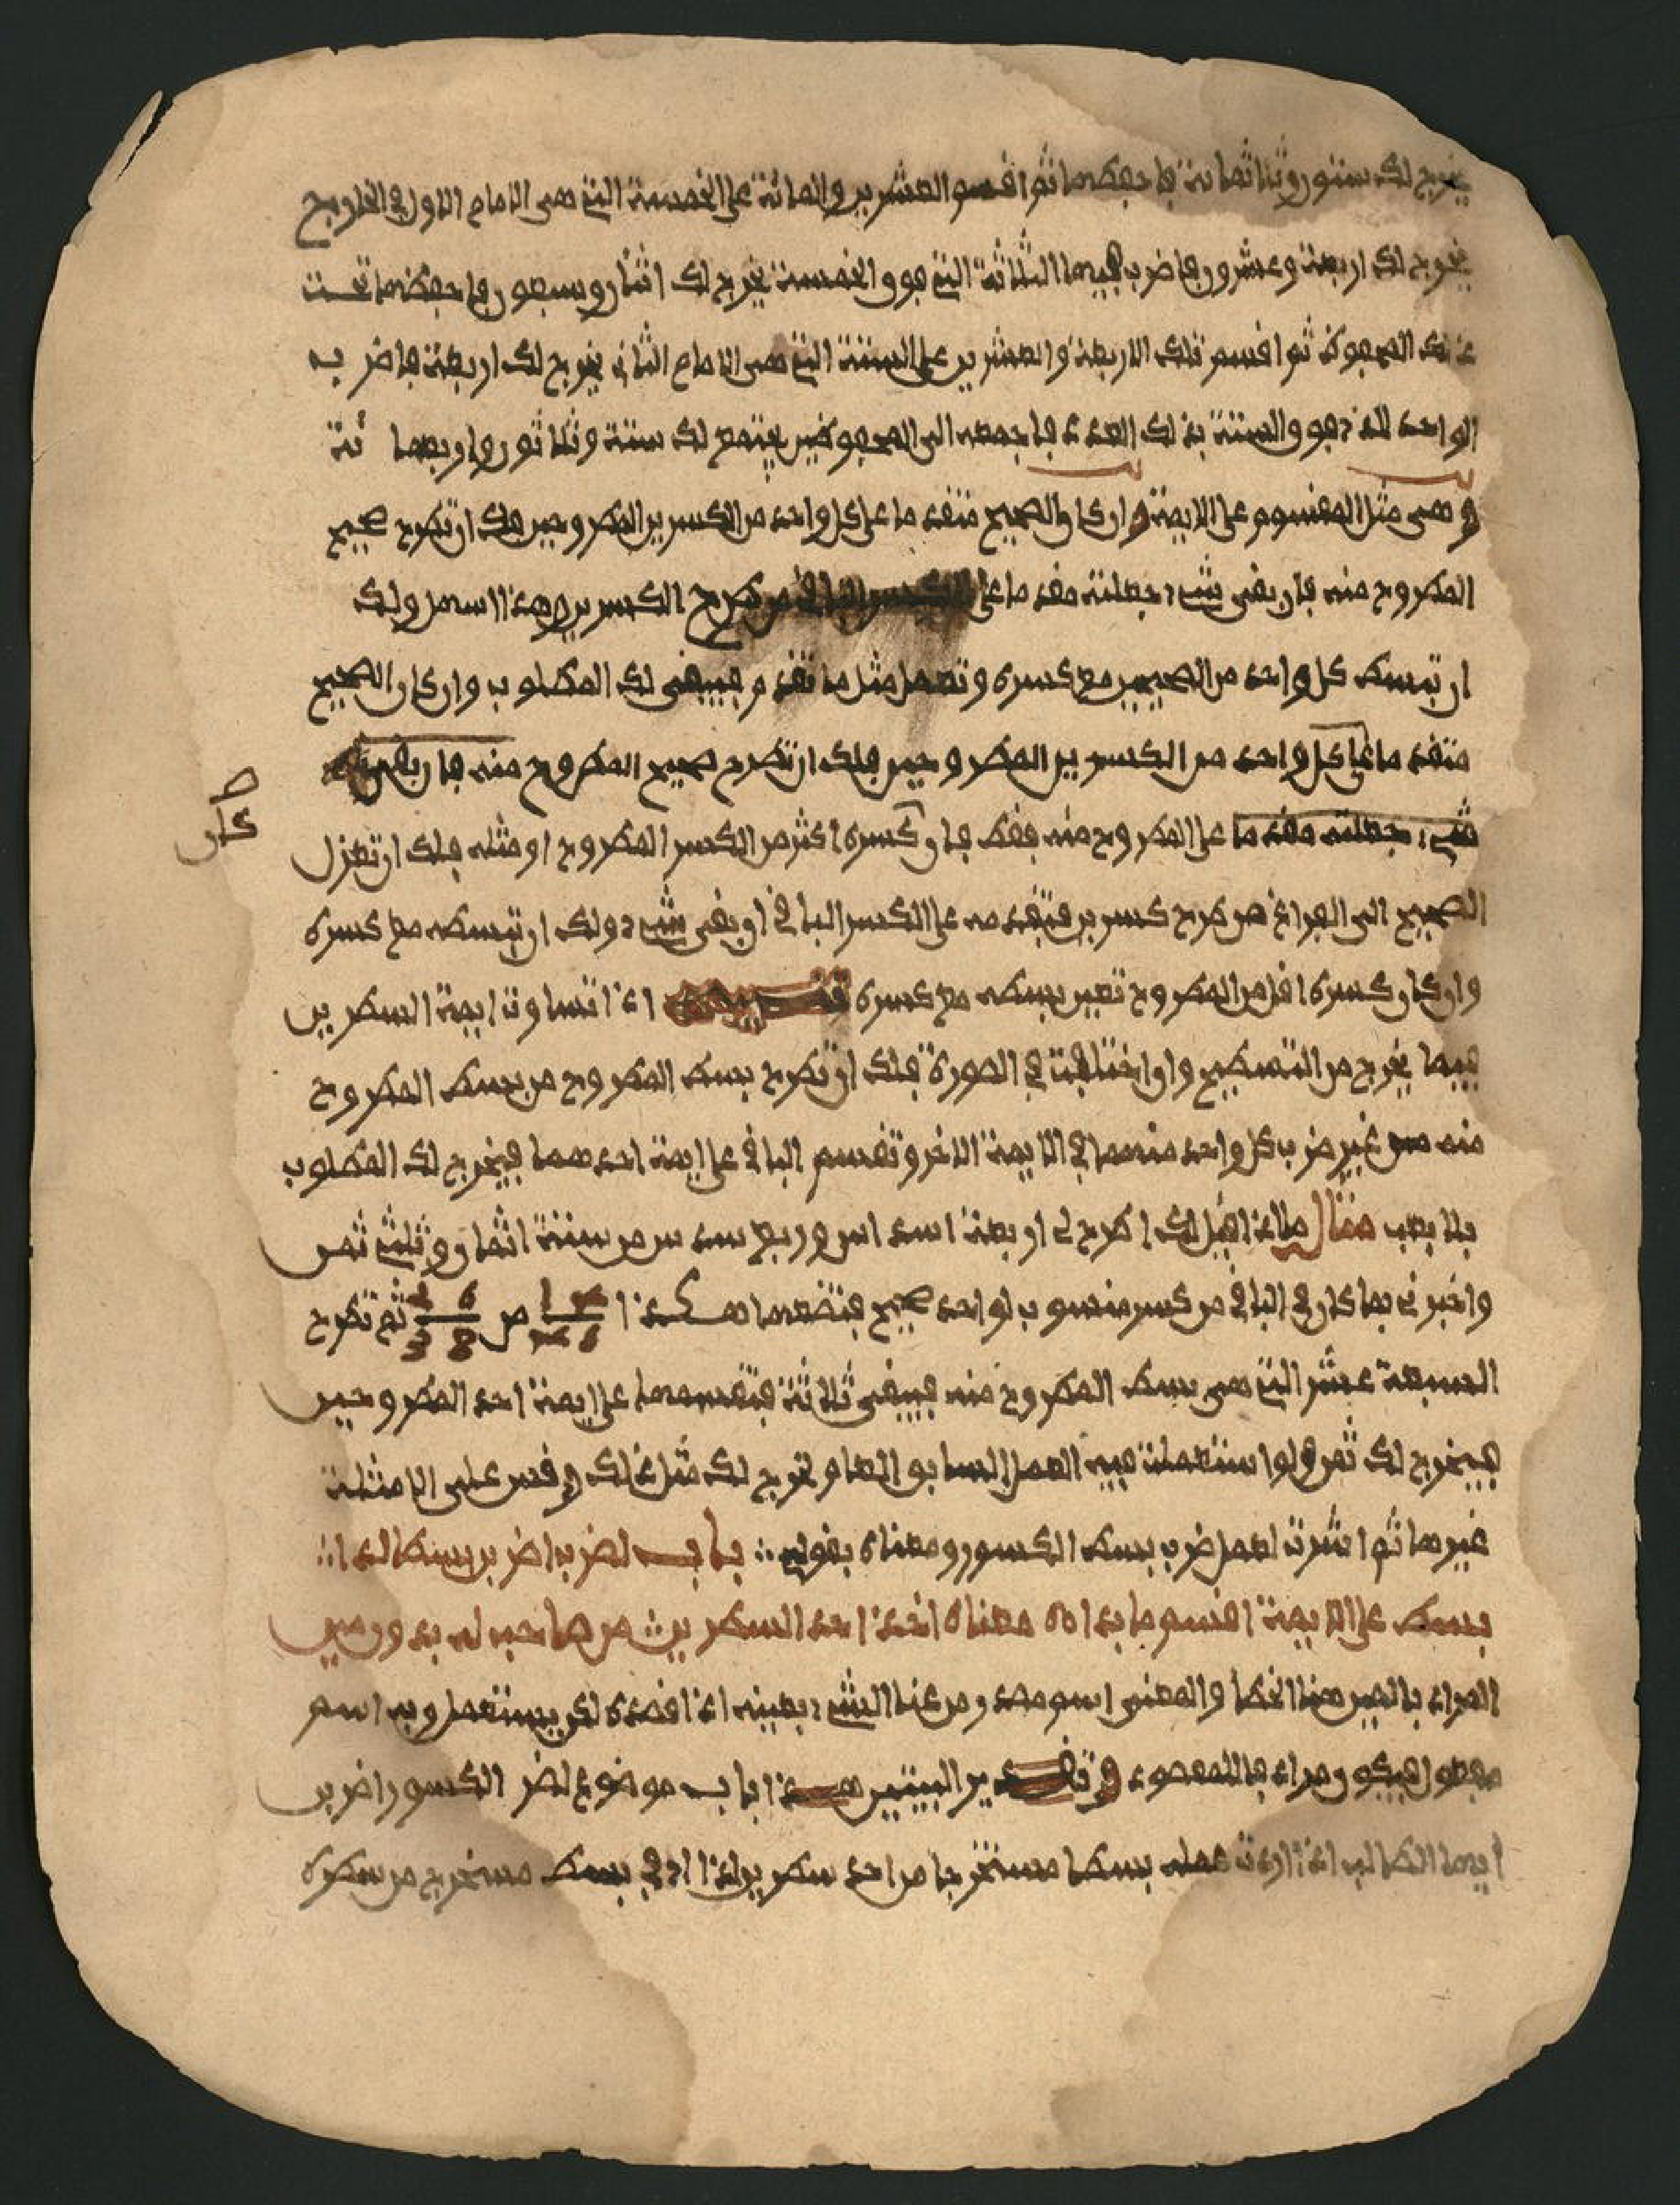 يخرج لك ستون وثلاثمائة فاحفظها ثم اقسم العشرين والمائة على الخمسة التي هي الامام الاول في الخارج
يخرج لك اربعة وعشرون فاضرب فيها الثلاثة التي فوق الخمسة يخرج لك اثنان وسبعون فاحفظها تحت
ذلك المحفوظ ثم اقسم تلك الاربعة والعشرين على الستة التي هي الامام الثاني يخرج لك اربعة فاضرب
الواحد الذي فوق الستة بذلك العدد فاجمعه الى المحفوظين يجتمع لك ستة وثلاثون واربعمائة
وهي مثل المقسوم على الايمة وان كان الصحيح متقدما على كل واحد من الكسرين المطروحين فلك ان تطرح صحيح
المطروح منه فان بقي شيء جعلته مقدما على الكسر الباقي من طرح الكسرين وهذا اسهل ولك
ان تبسط كل واحد من الصحيحين مع كسره وتعمل مثل ما تقدم فيبقى لك المطلوب وان كان الصحيح
متقدما على كل واحد من الكسرين المطروحين فلك ان تطرح صحيح المطروح منه فان بقي
شيء جعلته مقدما على المطروح منه فقط فان كسره اكثر من الكسر المطروح او مثله فلك ان تعزل
كان
الصحيح الى الفراغ من طرح كسرين فتقدمه على الكسر الباقي او بقي شيء ولك ان تبسطه مع كسره
وان كان كسره اقل من المطروح تعين بسطه مع كسره اذا تساوت ايمة السطرين
فيما يخرج من التسطيح وان اختلفت في الصورة فلك ان تطرح بسط المطروح من بسط المطروح
منه من غير ضرب كل واحد منهما في الايمة الاخر وتقسم الباقي على ايمة احدهما فيخرج لك المطلوب
بلا تعب مثال ما اذا قيل لك اطرح لي اربعة اسداس وربع سدس من ستة اثمان وثلثي ثمن
واخبرني بما كان في الباقي من كسر منسوب لواحد صحيح فتضعهما هكذا ثم تطرح
السبعة عشر التي هي بسط المطروح منه فيبقى ثلاثة فتقسمها على ايمة احد المطروحين
فيخرج لك ثمن ولو استعملت فيه العمل السابق العام تخرج لك مثل ذلك وقس على الامثلة
غيرها ثم اشرت لعمل ضرب بسط الكسور ومعناه بقولي باب لضرب اضربن بسطا لدا
بسط على الايمة اقسم ما بدا معناه اذا احد السطرين من صاحبه له بدون مين
المراد بالمين هنا الخطا والمعنى اسم مصدر من عنا الشيء بعينه اذا قصده لكن يستعمل وبه اسم
مفعول فيكون مراد باللمعصود وتقدير البيتين هذا باب موضوع لضر الكسور اضربن
ايها الطالب اذا اردت عمله بسطا مستخرجا من احد سطرين اذا في بسط مستخرج من سطره